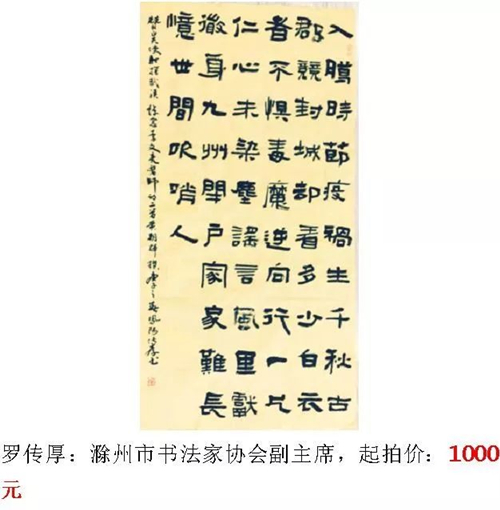 入臘時節疫禍生千秋古
郡競封城却看多少白衣
者不惧毒魔逆向行一片
仁心未染塵謠言風里獻
微身九州閉戶家家難長
憶世間吹哨人
李文亮醫師
罗传厚：滁州市书法家协会副主席，起拍价：1000
元